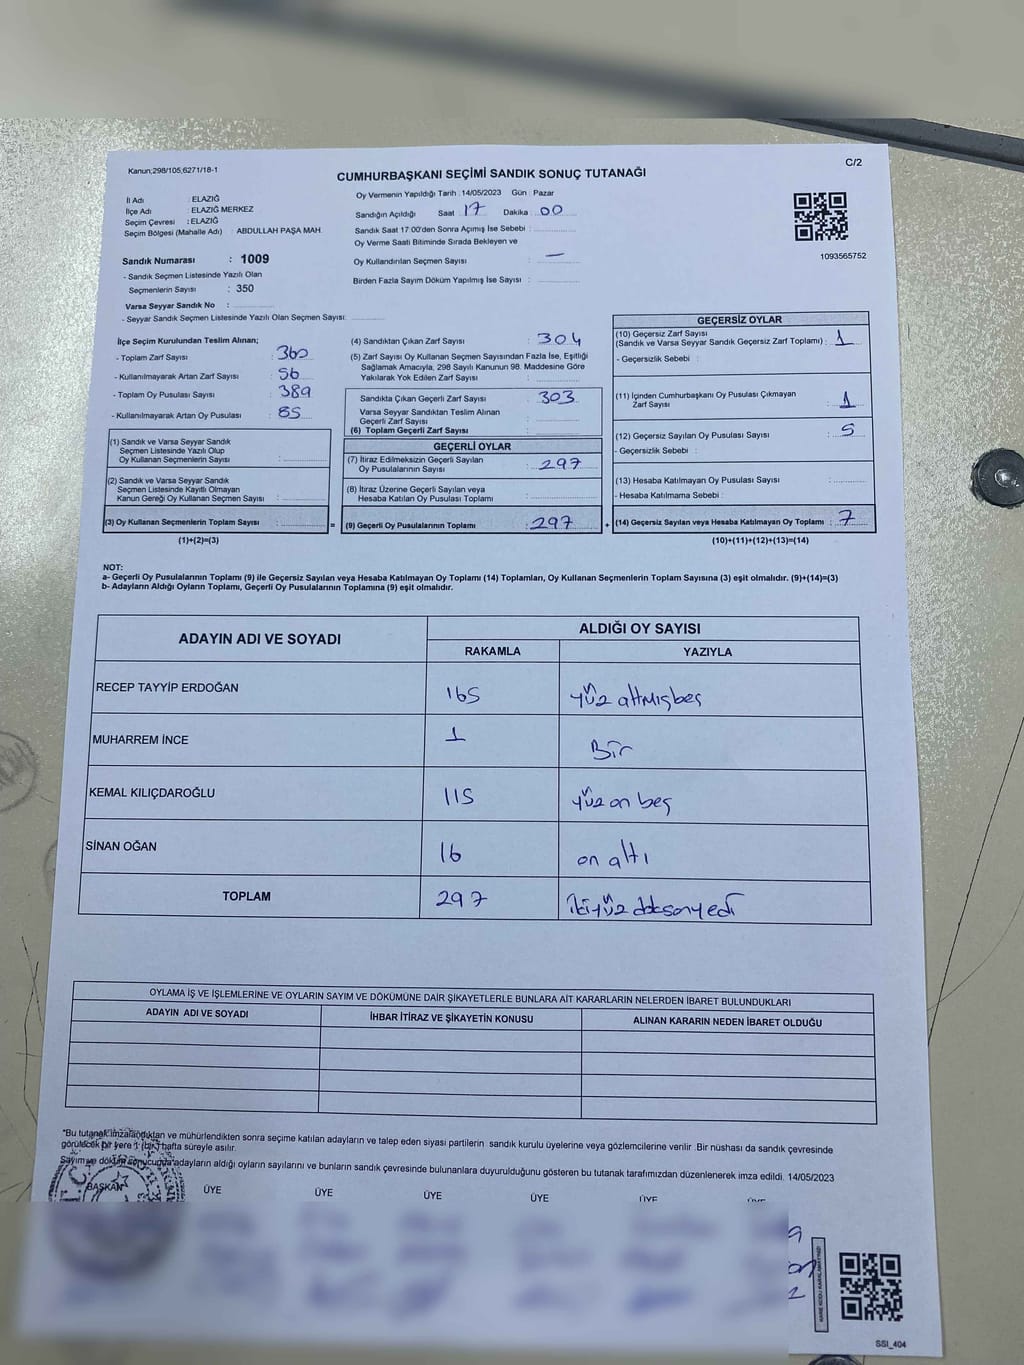 Kanun;298/105,6271/18-1
C/2
CUMHURBAŞKANI SEÇİMİ SANDIK SONUÇ TUTANAĞI
İl Adı : ELAZIĞ
İlçe Adı : ELAZIĞ MERKEZ
Seçim Çevresi : ELAZIĞ
Seçim Bölgesi (Mahalle Adı) : ABDULLAH PAŞA MAH.
Sandık Numarası : 1009
- Sandık Seçmen Listesinde Yazılı Olan
Seçmenlerin Sayısı : 350
Varsa Seyyar Sandık No :
- Seyyar Sandık Seçmen Listesinde Yazılı Olan Seçmen Sayısı:
Oy Vermenin Yapıldığı Tarih : 14/05/2023 Gün : Pazar
Sandığın Açıldığı Saat : 17 Dakika : 00
Sandık Saat 17:00'den Sonra Açımış İse Sebebi :
Oy Verme Saati Bitiminde Sırada Bekleyen ve
Oy Kullandırılan Seçmen Sayısı : —
Birden Fazla Sayım Döküm Yapılmış İse Sayısı :
1093565752
İlçe Seçim Kurulundan Teslim Alınan;
- Toplam Zarf Sayısı : 360
- Kullanılmayarak Artan Zarf Sayısı : 56
- Toplam Oy Pusulası Sayısı : 389
- Kullanılmayarak Artan Oy Pusulası : 85
(1) Sandık ve Varsa Seyyar Sandık
Seçmen Listesinde Yazılı Olup
Oy Kullanan Seçmenlerin Sayısı :
(2) Sandık ve Varsa Seyyar Sandık
Seçmen Listesinde Kayıtlı Olmayan
Kanun Gereği Oy Kullanan Seçmen Sayısı :
(3) Oy Kullanan Seçmenlerin Toplam Sayısı :
(1)+(2)=(3)
(4) Sandıktan Çıkan Zarf Sayısı : 304
(5) Zarf Sayısı Oy Kullanan Seçmen Sayısından Fazla İse, Eşitliği
Sağlamak Amacıyla, 298 Sayılı Kanunun 98. Maddesine Göre
Yakılarak Yok Edilen Zarf Sayısı :
Sandıkta Çıkan Geçerli Zarf Sayısı : 303
Varsa Seyyar Sandıktan Teslim Alınan
Geçerli Zarf Sayısı :
(6) Toplam Geçerli Zarf Sayısı :
GEÇERLİ OYLAR
(7) İtiraz Edilmeksizin Geçerli Sayılan
Oy Pusulalarının Sayısı : 297
(8) İtiraz Üzerine Geçerli Sayılan veya
Hesaba Katılan Oy Pusulası Toplamı :
= (9) Geçerli Oy Pusulalarının Toplamı : 297 +
GEÇERSİZ OYLAR
(10) Geçersiz Zarf Sayısı
(Sandık ve Varsa Seyyar Sandık Geçersiz Zarf Toplamı) : 1
- Geçersizlik Sebebi :
(11) İçinden Cumhurbaşkanı Oy Pusulası Çıkmayan
Zarf Sayısı : 1
(12) Geçersiz Sayılan Oy Pusulası Sayısı : 5
- Geçersizlik Sebebi :
(13) Hesaba Katılmayan Oy Pusulası Sayısı :
- Hesaba Katılmama Sebebi :
(14) Geçersiz Sayılan veya Hesaba Katılmayan Oy Toplamı : 7
(10)+(11)+(12)+(13)=(14)
NOT:
a- Geçerli Oy Pusulalarının Toplamı (9) ile Geçersiz Sayılan veya Hesaba Katılmayan Oy Toplamı (14) Toplamları, Oy Kullanan Seçmenlerin Toplam Sayısına (3) eşit olmalıdır. (9)+(14)=(3)
b- Adayların Aldığı Oyların Toplamı, Geçerli Oy Pusulalarının Toplamına (9) eşit olmalıdır.
ADAYIN ADI VE SOYADI ALDIĞI OY SAYISI
RAKAMLA YAZIYLA
RECEP TAYYİP ERDOĞAN 165 yüz altmışbeş
MUHARREM İNCE 1 Bir
KEMAL KILIÇDAROĞLU 115 yüz on beş
SİNAN OĞAN 16 on altı
TOPLAM 297 ikiyüz doksanyedi
OYLAMA İŞ VE İŞLEMLERİNE VE OYLARIN SAYIM VE DÖKÜMÜNE DAİR ŞİKAYETLERLE BUNLARA AİT KARARLARIN NELERDEN İBARET BULUNDUKLARI
ADAYIN ADI VE SOYADI İHBAR İTİRAZ VE ŞİKAYETİN KONUSU ALINAN KARARIN NEDEN İBARET OLDUĞU
*Bu tutanak imzalandıktan ve mühürlendikten sonra seçime katılan adayların ve talep eden siyasi partilerin sandık kurulu üyelerine veya gözlemcilerine verilir .Bir nüshası da sandık çevresinde
görülecek bir yere 1 (bir) hafta süreyle asılır.
Sayım ve döküm sonucunda adayların aldığı oyların sayılarını ve bunların sandık çevresinde bulunanlara duyurulduğunu gösteren bu tutanak tarafımızdan düzenlenerek imza edildi. 14/05/2023
BAŞKAN ÜYE ÜYE ÜYE ÜYE ÜYE ÜYE
SSI_404